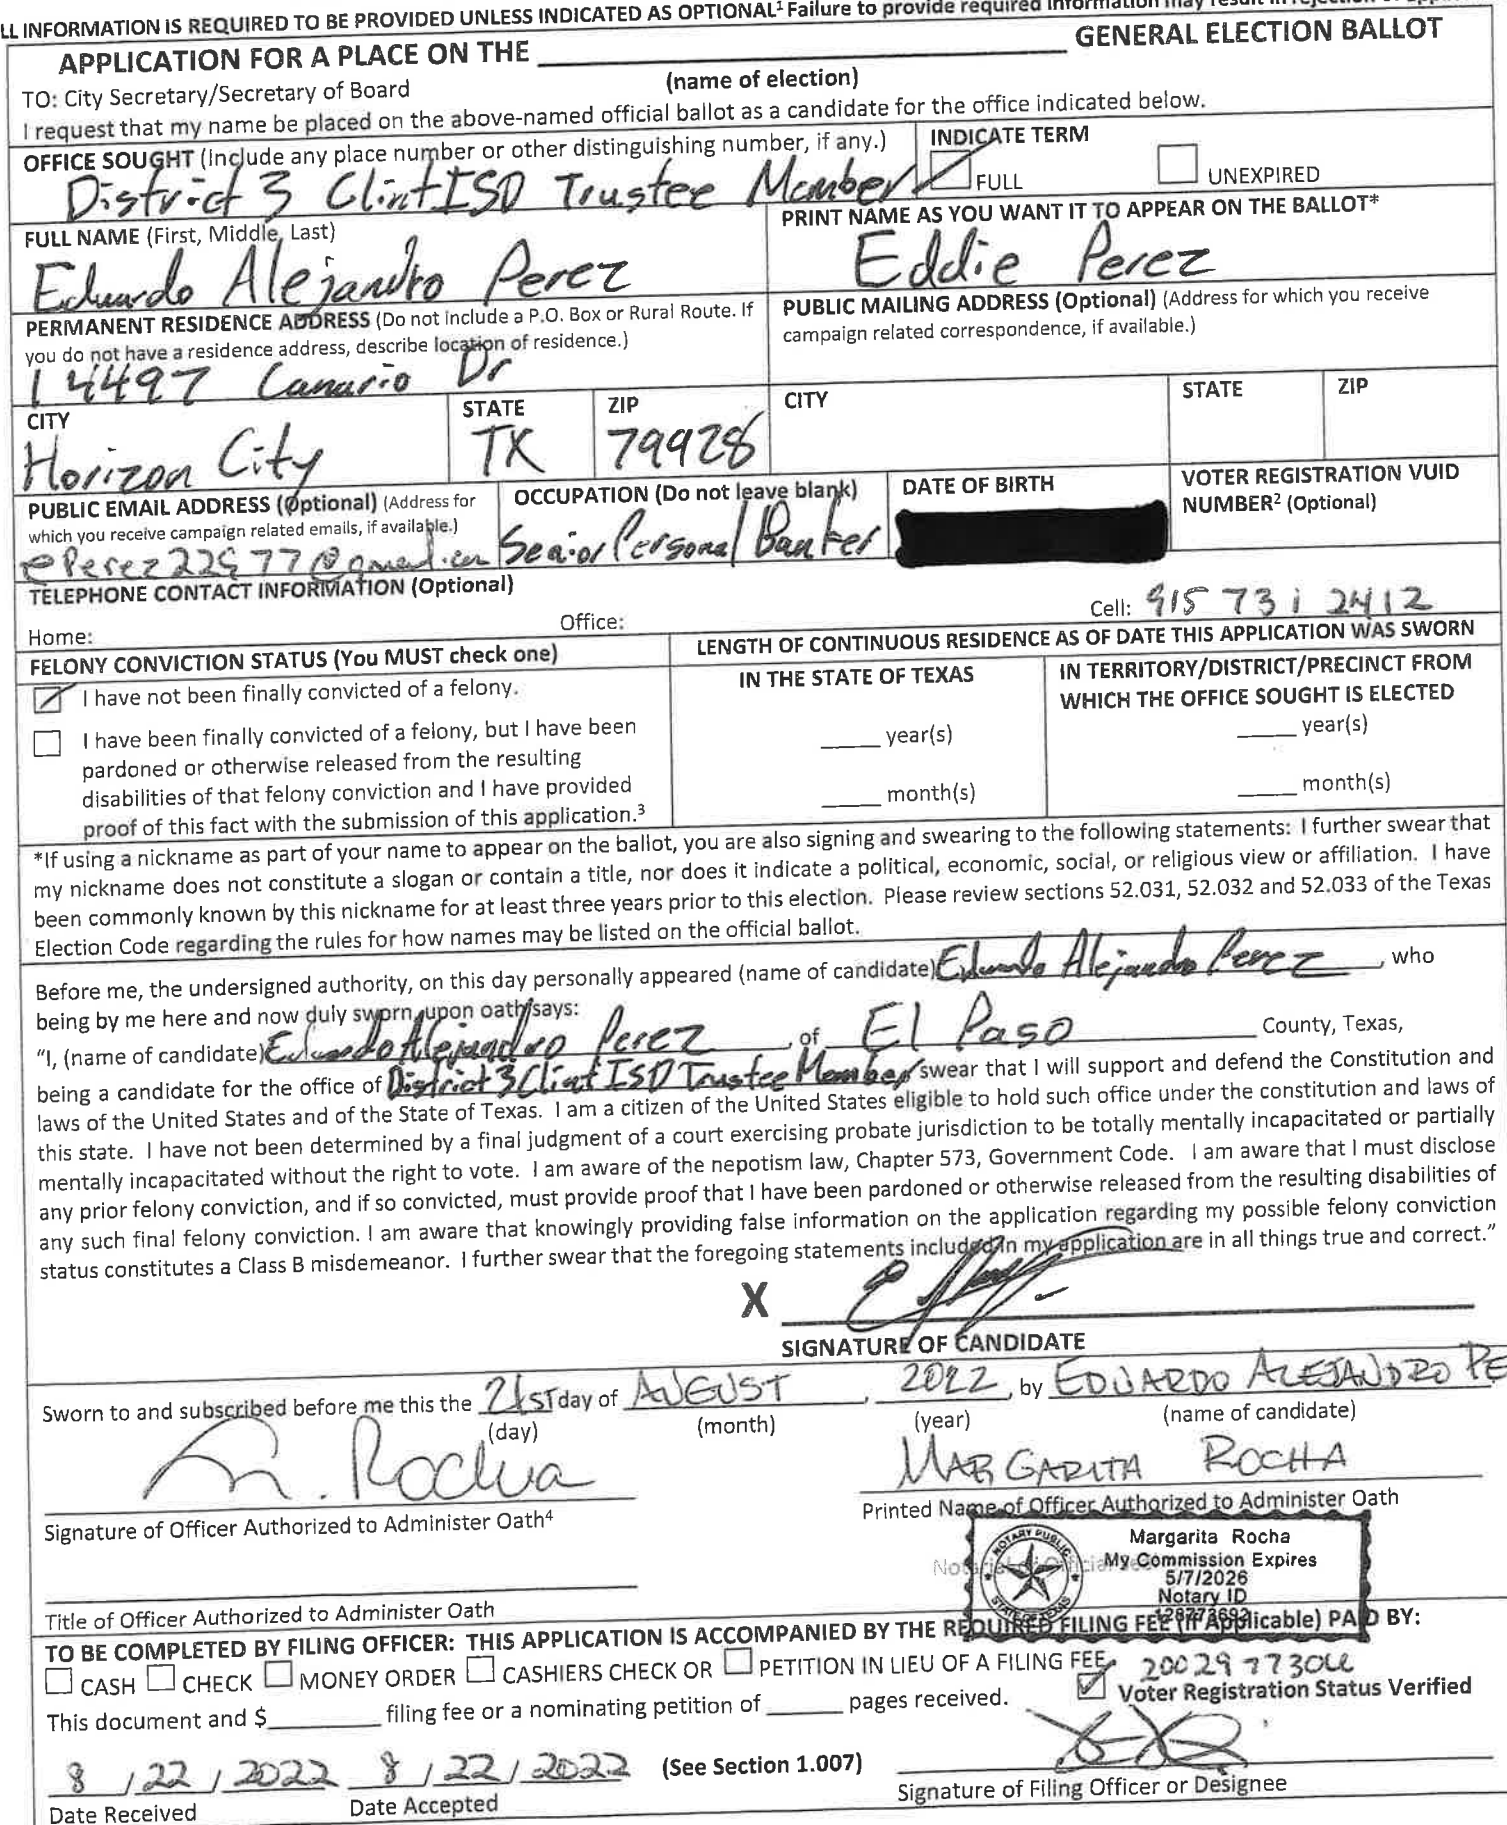 LL INFORMATION IS REQUIRED TO BE PROVIDED UNLESS INDICATED AS OPTIONAL¹ Failure to provide required information may result in rejection of
APPLICATION FOR A PLACE ON THE ____________ GENERAL ELECTION BALLOT
(name of election)
TO: City Secretary/Secretary of Board
I request that my name be placed on the above-named official ballot as a candidate for the office indicated below.
OFFICE SOUGHT (Include any place number or other distinguishing number, if any.)
District 3 Clint ISD Trustee Member
INDICATE TERM
FULL
UNEXPIRED
FULL NAME (First, Middle, Last)
Eduardo Alejandro Perez
PRINT NAME AS YOU WANT IT TO APPEAR ON THE BALLOT*
Eddie Perez
PERMANENT RESIDENCE ADDRESS (Do not include a P.O. Box or Rural Route. If
you do not have a residence address, describe location of residence.)
14497 Canario Dr
PUBLIC MAILING ADDRESS (Optional) (Address for which you receive
campaign related correspondence, if available.)
CITY
Horizon City
STATE
TX
ZIP
79928
CITY
STATE
ZIP
PUBLIC EMAIL ADDRESS (Optional) (Address for
which you receive campaign related emails, if available.)
OCCUPATION (Do not leave blank)
Senior Personal Banker
DATE OF BIRTH
VOTER REGISTRATION VUID
NUMBER² (Optional)
TELEPHONE CONTACT INFORMATION (Optional)
Home:
Office:
Cell: 915 731 2412
FELONY CONVICTION STATUS (You MUST check one)
I have not been finally convicted of a felony.
I have been finally convicted of a felony, but I have been
pardoned or otherwise released from the resulting
disabilities of that felony conviction and I have provided
proof of this fact with the submission of this application.³
LENGTH OF CONTINUOUS RESIDENCE AS OF DATE THIS APPLICATION WAS SWORN
IN THE STATE OF TEXAS
____ year(s)
____ month(s)
IN TERRITORY/DISTRICT/PRECINCT FROM
WHICH THE OFFICE SOUGHT IS ELECTED
____ year(s)
____ month(s)
*If using a nickname as part of your name to appear on the ballot, you are also signing and swearing to the following statements: I further swear that
my nickname does not constitute a slogan or contain a title, nor does it indicate a political, economic, social, or religious view or affiliation. I have
been commonly known by this nickname for at least three years prior to this election. Please review sections 52.031, 52.032 and 52.033 of the Texas
Election Code regarding the rules for how names may be listed on the official ballot.
Before me, the undersigned authority, on this day personally appeared (name of candidate) Eduardo Alejandro Perez, who
being by me here and now duly sworn, upon oath says:
"I, (name of candidate) Eduardo Alejandro Perez, of El Paso County, Texas,
being a candidate for the office of District 3 Clint ISD Trustee Member swear that I will support and defend the Constitution and
laws of the United States and of the State of Texas. I am a citizen of the United States eligible to hold such office under the constitution and laws of
this state. I have not been determined by a final judgment of a court exercising probate jurisdiction to be totally mentally incapacitated or partially
mentally incapacitated without the right to vote. I am aware of the nepotism law, Chapter 573, Government Code. I am aware that I must disclose
any prior felony conviction, and if so convicted, must provide proof that I have been pardoned or otherwise released from the resulting disabilities of
any such final felony conviction. I am aware that knowingly providing false information on the application regarding my possible felony conviction
status constitutes a Class B misdemeanor. I further swear that the foregoing statements included in my application are in all things true and correct."
X
SIGNATURE OF CANDIDATE
Sworn to and subscribed before me this the 21st day of AUGUST, 2022, by EDUARDO ALEJANDRO PE
(day) (month) (year) (name of candidate)
M. Rocha
MARGARITA ROCHA
Signature of Officer Authorized to Administer Oath⁴
Printed Name of Officer Authorized to Administer Oath
NOTARY PUBLIC
STATE OF TEXAS
Margarita Rocha
My Commission Expires
5/7/2026
Notary ID
Title of Officer Authorized to Administer Oath
TO BE COMPLETED BY FILING OFFICER: THIS APPLICATION IS ACCOMPANIED BY THE REQUIRED FILING FEE (If Applicable) PAID BY:
CASH CHECK MONEY ORDER CASHIERS CHECK OR PETITION IN LIEU OF A FILING FEE.
Voter Registration Status Verified
This document and $________ filing fee or a nominating petition of _____ pages received.
8 / 22 / 2022 8 / 22 / 2022 (See Section 1.007)
Date Received Date Accepted Signature of Filing Officer or Designee